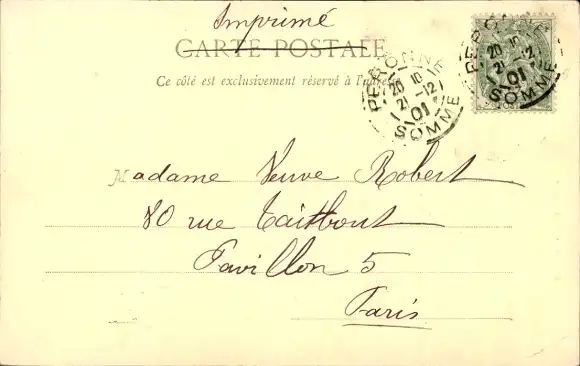 Imprimé
CARTE POSTALE
Ce côté est exclusivement réservé à l'adresse
PERONNE
20 10
21 -12
01
SOMME
PERONNE
20 10
21 -12
01
SOMME
Madame Veuve Robert
80 rue Taitbout
Pavillon 5
Paris